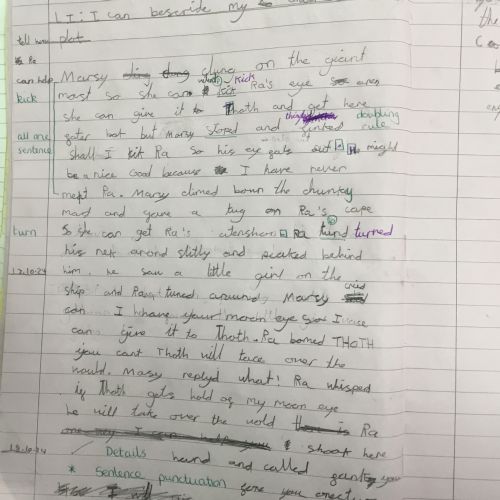 LI: I can bescride my
tell how plot
Ra
can help Marsy clung on the geint
kick mast so she can kick Ra's eye so even
she can give it to Thoth and get here
gater bot but Marsy stoped and doubling
all one shall I kit Ra so his eye gets out. He might rule
sentence be a nice God because I have never
mept Ra. Marsy climed bown the chunkey
mast and gave a tug on Ra's cape
turn So she can get Ra's atenshion. Ra turnd turned
his nek around slitly and peaked behind
12.10.24 him. he saw a little girl on the
ship and Ra tuned around, Marsy cried
can I have your moon eye so I
can give it to Thoth. Ra bomed THOTH
you cant Thoth will tace over the
would. Marsy replyd what! Ra whisped
if Thoth gets hold of my moon eye
he will take over the wold Ra
one may I can help you shook here
12.10.24 Details hand and called
* Sentence punctuation you